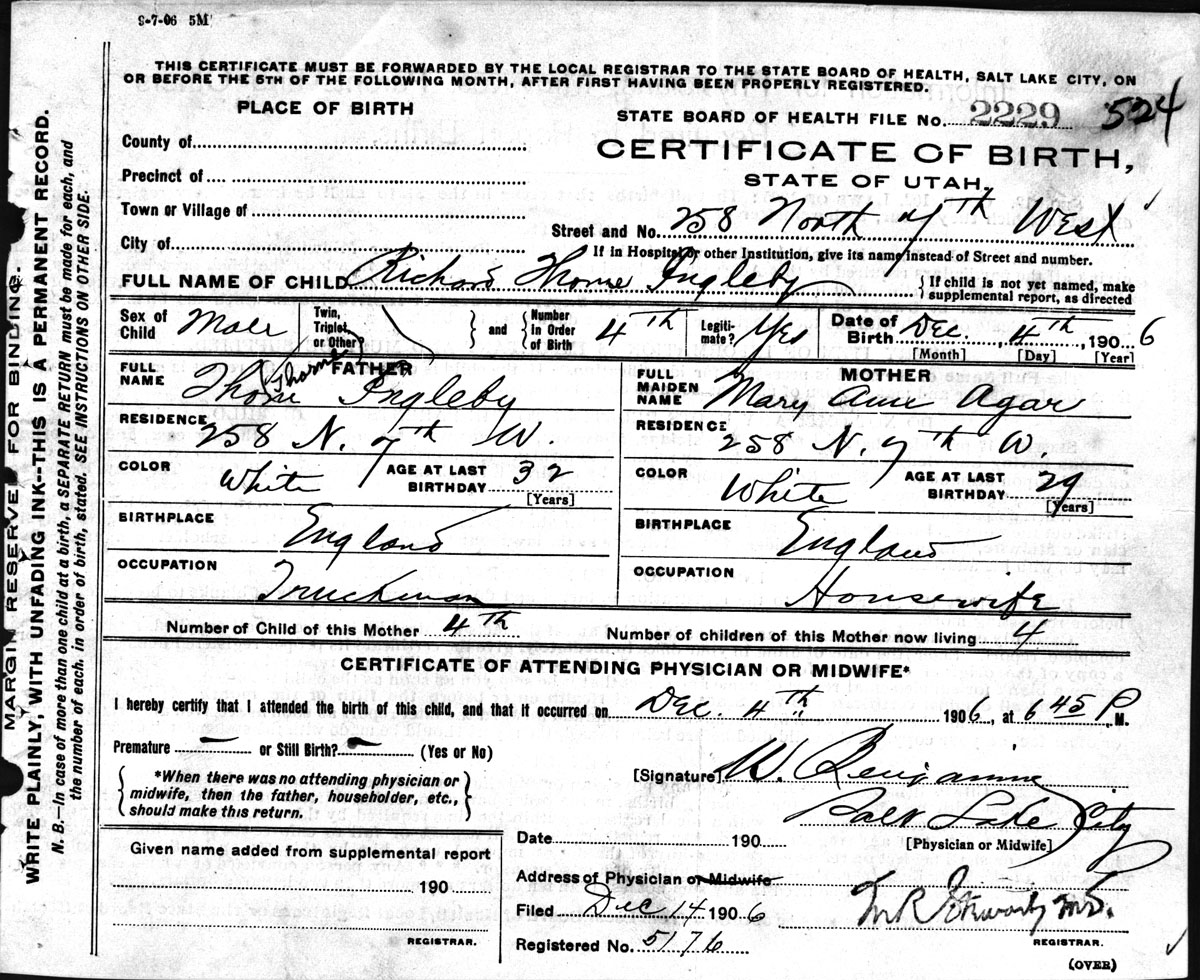 9-7-06 5M
THIS CERTIFICATE MUST BE FORWARDED BY THE LOCAL REGISTRAR TO THE STATE BOARD OF HEALTH, SALT LAKE CITY, ON
OR BEFORE THE 5TH OF THE FOLLOWING MONTH, AFTER FIRST HAVING BEEN PROPERLY REGISTERED.
PLACE OF BIRTH
STATE BOARD OF HEALTH FILE No. 2229 524
County of
CERTIFICATE OF BIRTH,
Precinct of
STATE OF UTAH.
Town or Village of
Street and No. 258 North 7th West
City of
If in Hospital or other Institution, give its name instead of Street and number.
FULL NAME OF CHILD Richard Thome Ingleby
{ If child is not yet named, make
supplemental report, as directed
Sex of Child Male
Twin, Triplet, or Other? } and { Number in Order of Birth 4th
Legitimate? Yes
Date of Birth Dec. 4th 1906
[Month] [Day] [Year]
FATHER
FULL NAME Thome Ingleby
Thorne
RESIDENCE 258 N. 7th W
COLOR White AGE AT LAST BIRTHDAY 32 [Years]
BIRTHPLACE England
OCCUPATION Truckman
MOTHER
FULL MAIDEN NAME Mary Ann Agar
RESIDENCE 258 N. 7th W.
COLOR White AGE AT LAST BIRTHDAY 29 [Years]
BIRTHPLACE England
OCCUPATION Housewife
Number of Child of this Mother 4th
Number of children of this Mother now living 4
CERTIFICATE OF ATTENDING PHYSICIAN OR MIDWIFE*
I hereby certify that I attended the birth of this child, and that it occurred on Dec. 4th 1906, at 6 45 P M.
Premature — or Still Birth? — (Yes or No)
{ *When there was no attending physician or
midwife, then the father, householder, etc.,
should make this return. }
[Signature] W. Benjamin
Salt Lake City
Date 190
[Physician or Midwife]
Given name added from supplemental report
190
REGISTRAR.
Address of Physician or Midwife
Filed Dec 14 1906
M R Stewart M.D.
Registered No. 5176
REGISTRAR.
(OVER)
MARGIN RESERVED FOR BINDING.
WRITE PLAINLY, WITH UNFADING INK--THIS IS A PERMANENT RECORD.
N. B.—In case of more than one child at a birth, a SEPARATE RETURN must be made for each, and
the number of each, in order of birth, stated. SEE INSTRUCTIONS ON OTHER SIDE.